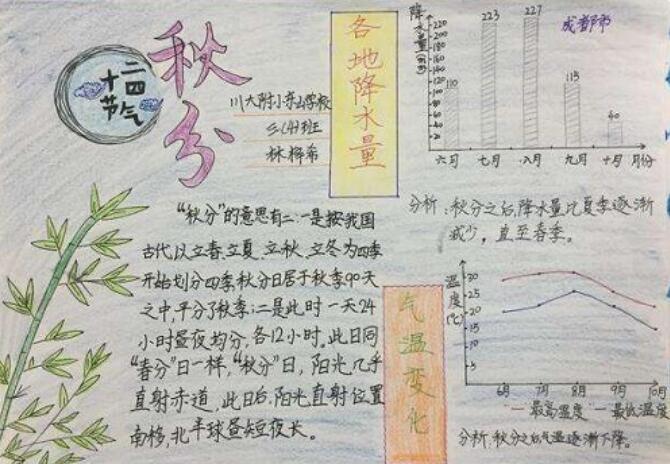 二十四节气
秋分
川大附小分山学校
三(4)班
各地降水量
"秋分"的意思有二:一是按我国
古代以立春、立夏、立秋、立冬为四季
开始划分四季,秋分日居于秋季90天
之中,平分了秋季;二是此时一天24
小时昼夜均分,各12小时,此日同
"春分"日一样,"秋分"日,阳光几乎
直射赤道,此日后,阳光直射位置
南移,北半球昼短夜长。
降水量(mm)
成都市
220
200
180
160
140
120
110
223
227
115
40
六月 七月 八月 九月 十月 月份
分析:秋分之后,降水量比夏季逐渐
减少,直至春季。
气温变化
温度(℃)
30
25
20
15
5
6月 7月 8月 9月 10月
一最高温度 一最低温度
分析:秋分之后气温逐渐下降。